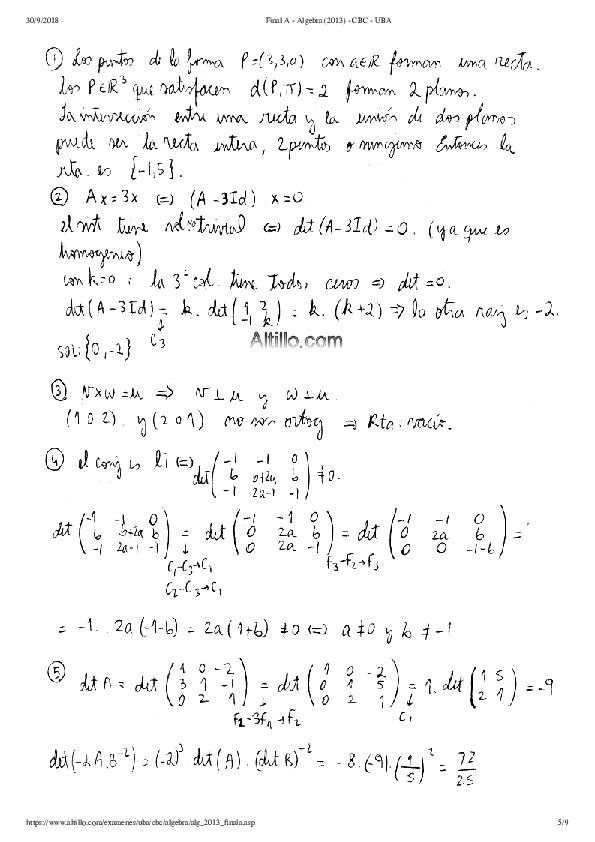 30/9/2018 Final A - Algebra (2013) - CBC - UBA
① Los puntos de la forma P=(3,3,a) con a∈R forman una recta.
Los P∈R³ que satisfacen d(P,π)=2 forman 2 planos.
La intersección entre una recta y la unión de dos planos
puede ser la recta entera, 2 puntos o ninguno Entonces la
rta. es {-1,5}.
② Ax=3x ⇔ (A-3Id) x=0
el sist tiene sol no trivial ⇔ det(A-3Id)=0. (ya que es
homogeneo)
con k=0: la 3ª col. tiene todos ceros ⇒ det=0.
det(A-3Id) = k. det(1 2 / -1 k) = k. (k+2) ⇒ la otra raiz es -2.
C3
Altillo.com
sol: {0,-2}
③ v×w=u ⇒ v⊥u y w⊥u.
(1 0 2) y (2 0 1) no son ortog ⇒ Rta. vacío.
④ el conj es li ⇔ det(-1 -1 0 / b b+2a b / -1 2a-1 -1) ≠0.
det(-1 -1 0 / b b+2a b / -1 2a-1 -1) = det(-1 -1 0 / 0 2a b / 0 2a -1) = det(-1 -1 0 / 0 2a b / 0 0 -1-b) =
C1-C3→C1 F3-F2→F3
C2-C3→C1
= -1. 2a(-1-b) = 2a(1+b) ≠0 ⇔ a≠0 y b≠-1
⑤ det A = det(1 0 -2 / 3 1 -1 / 0 2 1) = det(1 0 -2 / 0 1 5 / 0 2 1) = 1. det(1 5 / 2 1) = -9
F2-3F1→F2 C1
det(-2A.B⁻²) = (-2)³ det(A). (det B)⁻² = -8.(-9).(1/5)² = 72/25
https://www.altillo.com/examenes/uba/cbc/algebra/alg_2013_finala.asp 5/9